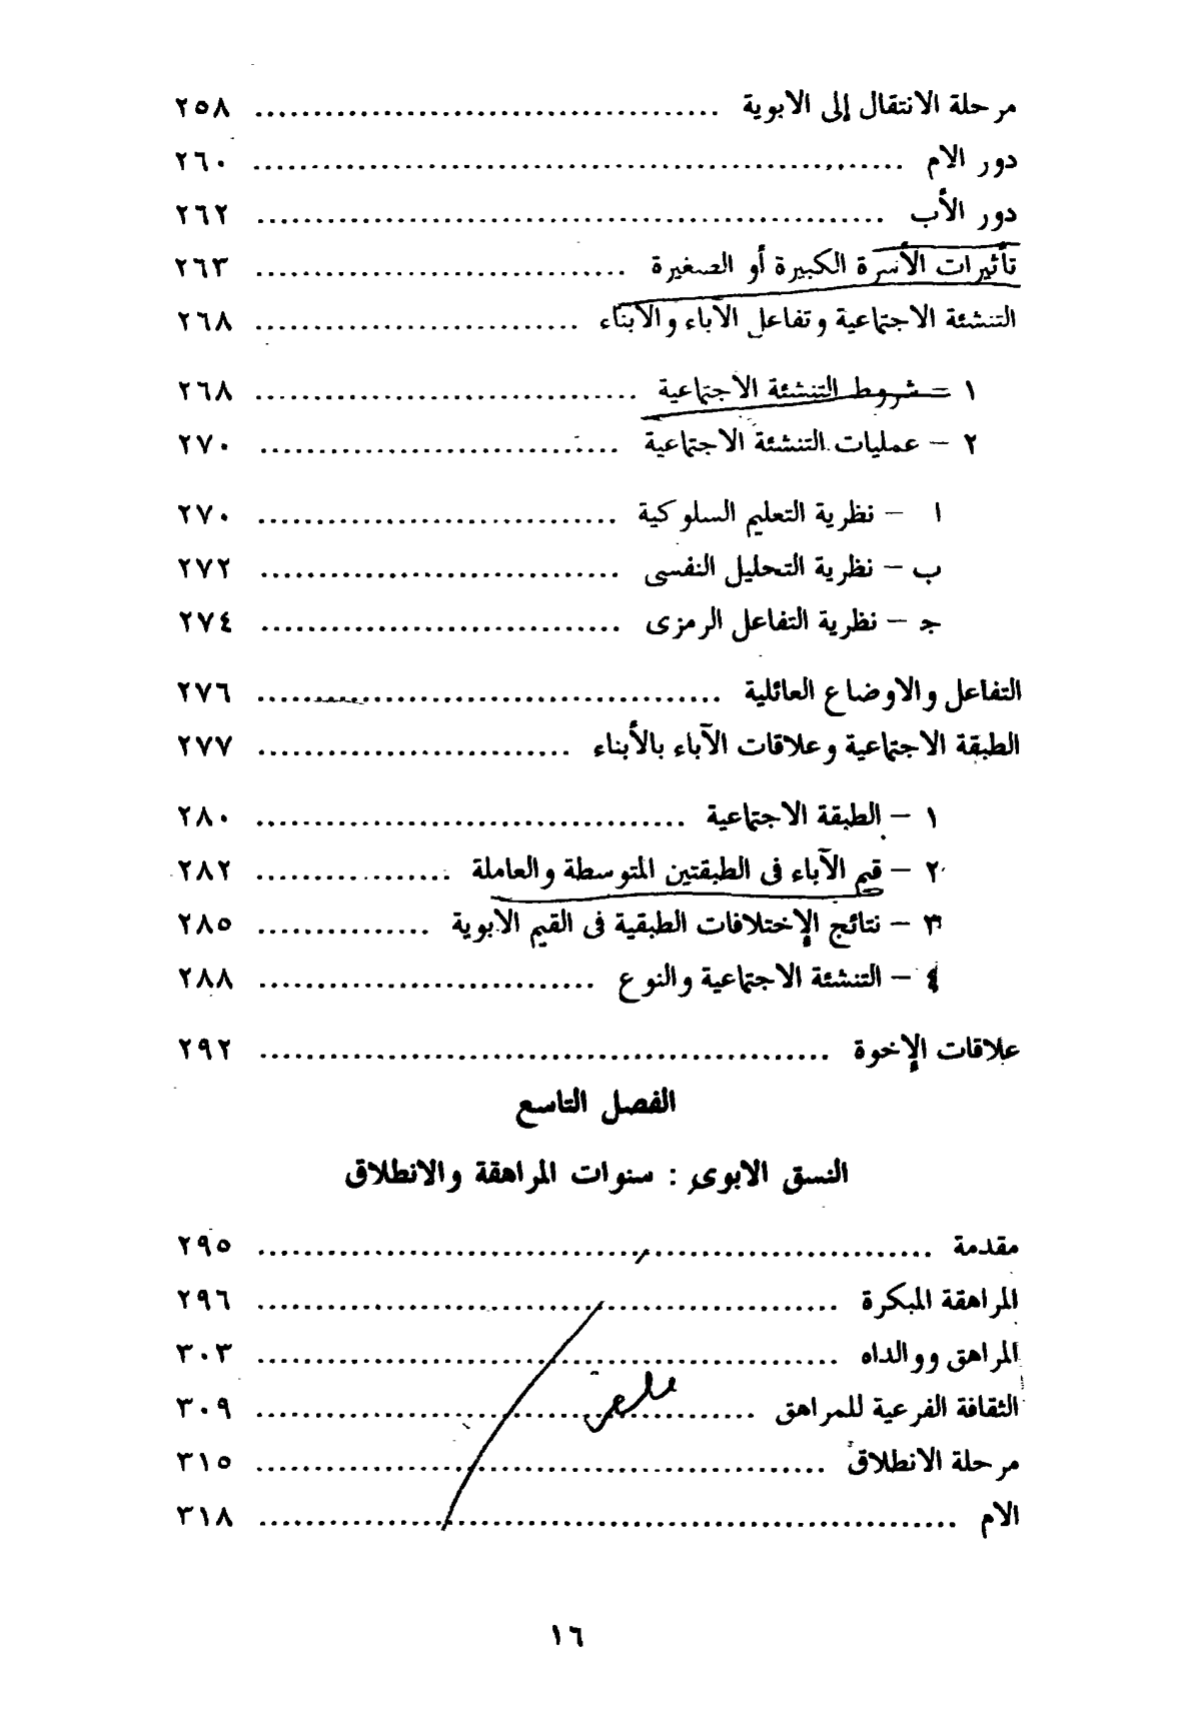 مرحلة الانتقال إلى الابوية ........................................ ٢٥٨
دور الام ........................................................ ٢٦٠
دور الأب ...................................................... ٢٦٢
تأثيرات الأسرة الكبيرة أو الصغيرة ................................ ٢٦٣
التنشئة الاجتماعية وتفاعل الآباء والأبناء ............................ ٢٦٨
١ – شروط التنشئة الاجتماعية ................................. ٢٦٨
٢ – عمليات التنشئة الاجتماعية ............................... ٢٧٠
ا – نظرية التعليم السلوكية ............................... ٢٧٠
ب – نظرية التحليل النفسى ............................... ٢٧٢
جـ – نظرية التفاعل الرمزى ............................... ٢٧٤
التفاعل والاوضاع العائلية ........................................ ٢٧٦
الطبقة الاجتماعية وعلاقات الآباء بالأبناء ........................... ٢٧٧
١ – الطبقة الاجتماعية ..................................... ٢٨٠
٢ – قيم الآباء فى الطبقتين المتوسطة والعاملة ................. ٢٨٢
٣ – نتائج الإختلافات الطبقية فى القيم الابوية ............... ٢٨٥
٤ – التنشئة الاجتماعية والنوع ............................. ٢٨٨
علاقات الإخوة ................................................. ٢٩٢
الفصل التاسع
النسق الابوى : سنوات المراهقة والانطلاق
مقدمة .......................................................... ٢٩٥
المراهقة المبكرة .................................................. ٢٩٦
المراهق ووالداه .................................................. ٣٠٣
الثقافة الفرعية للمراهق ........................................... ٣٠٩
مرحلة الانطلاق ................................................. ٣١٥
الام ............................................................ ٣١٨
١٦